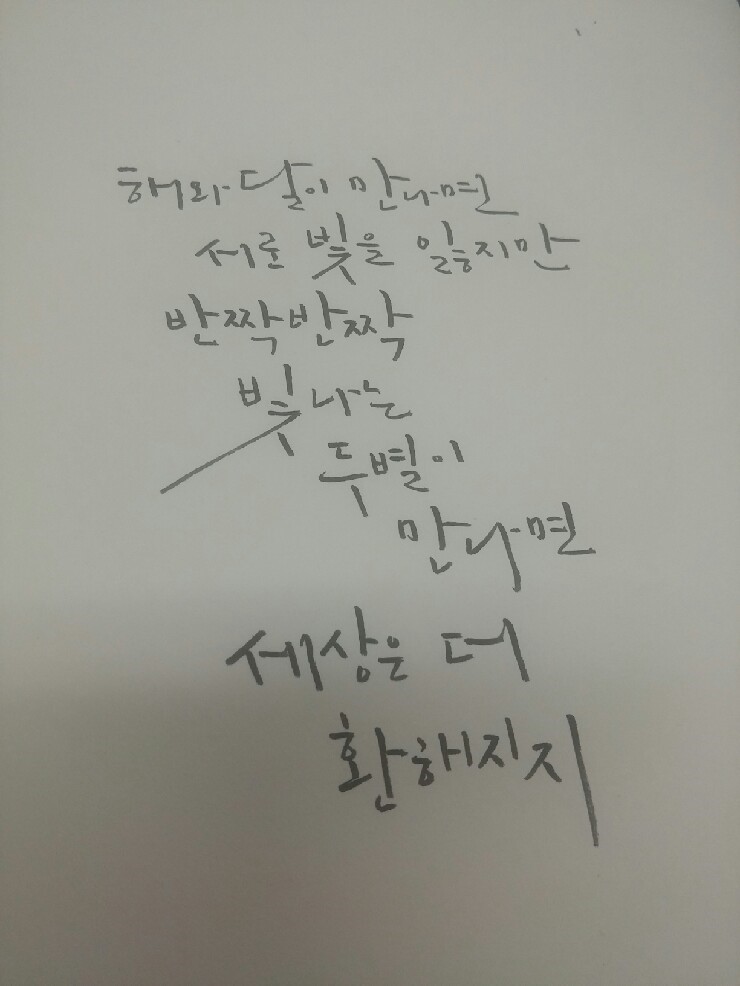 해와 달이 만나면
서로 빛을 잃지만
반짝반짝
빛나는
두별이
만나면
세상은 더
환해지지